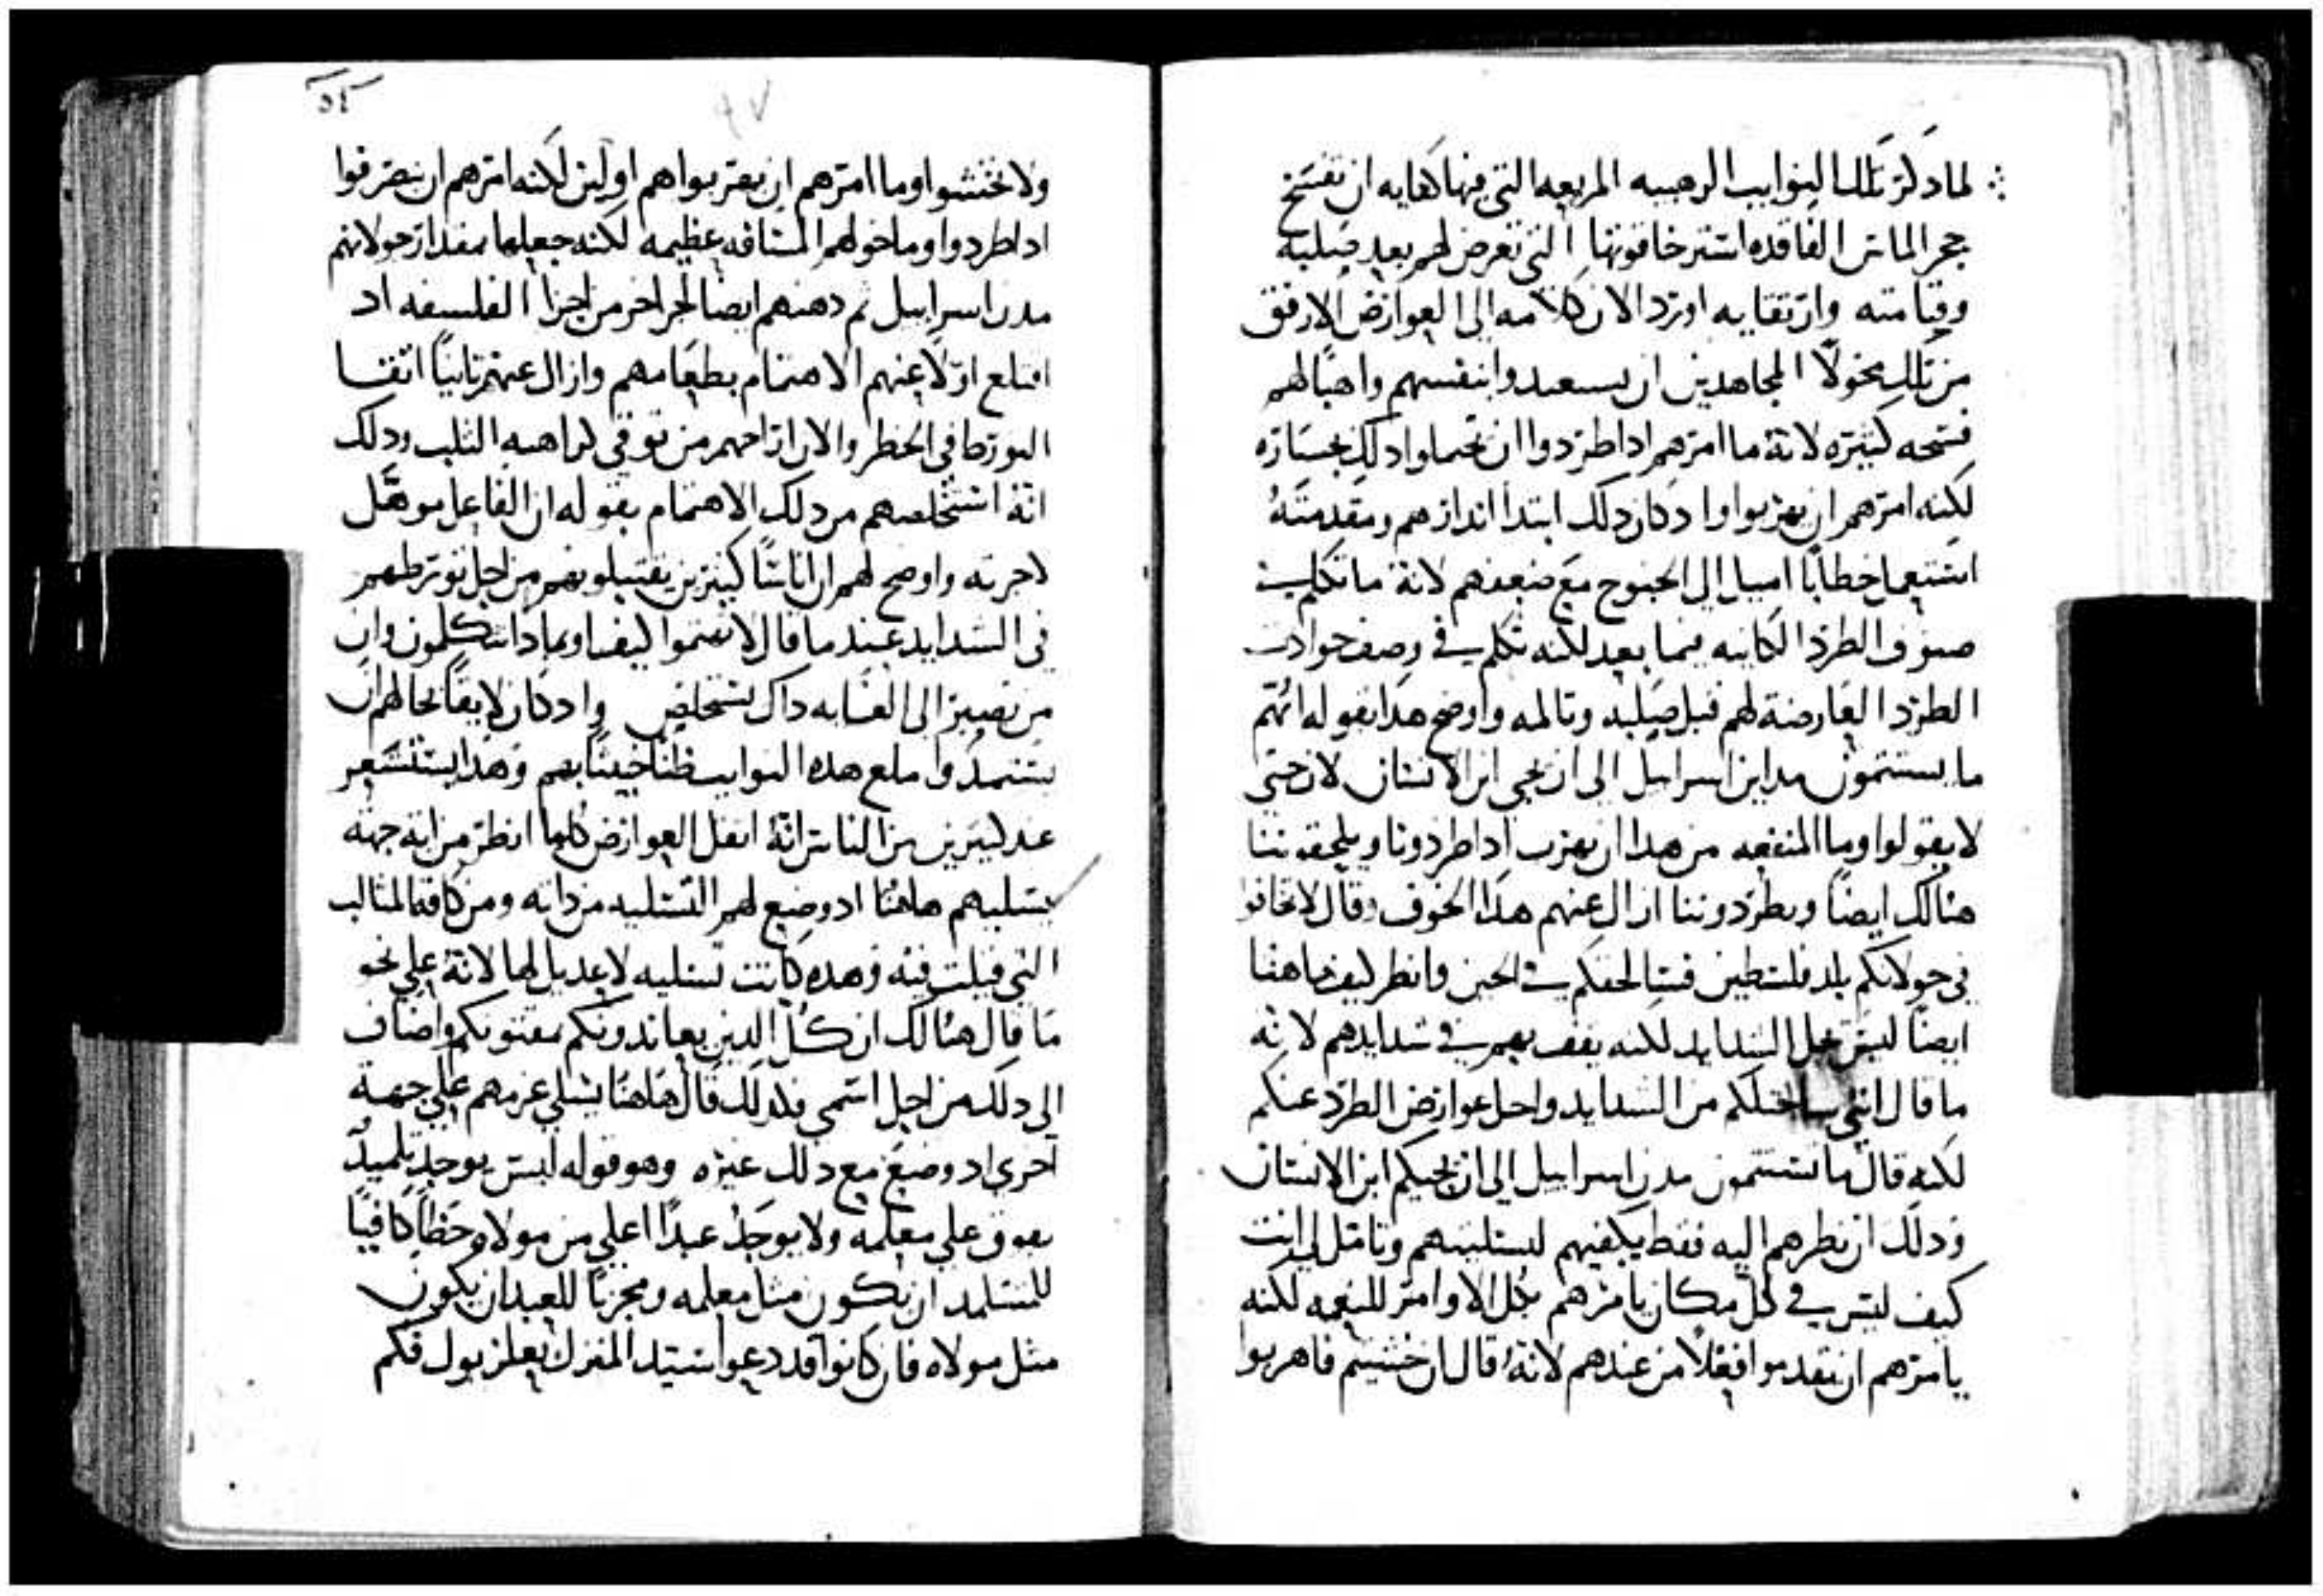 لما دكر تلك النوايب الرهيبه المريعه التي فيها كفايه ان تفسخ
حجر الماس الفاقده استرخافوتها التي تعرض لهم بعد صلبه
وقيامته وارتقايه اورد الان كلامه الي العوارض الارفق
من تلك مخولا المجاهدين ان يستعيدوا بنفسهم واهبًا لهم
فسحه كثيره لانه ما امرهم ادا طردوا ان يحتملوا دلك بجساره
لكنه امرهم ان يهربوا واد كان دلك ابتدا اندارهم ومقدمته
استعمل خطابًا اميل الي الجنوح مع ضعفهم لانه ما تكلم في
صنوف الطرد الكاينه فيما بعد لكنه تكلم في وصف حوادث
الطرد العارضة لهم قبل صلبه وتالمه واوضح هدا بقوله انكم
ما تستتمون مداين اسراييل الي ان يجي ابن الانسان لان حتي
لا يقولوا وما المنفعه من هدا ان نهرب ادا طردونا ويلحقوننا
هنالك ايضًا ويطردوننا ازال عنهم هدا الخوف وقال لا تخافوا
في جولانكم بلد فلسطين فسالحقكم في الحين وانظر كيف هاهنا
ايضًا ليس يحل الشدايد لكنه يقف بهم في شدايدهم لانه
ما قال انني ساختلكم من الشدايد واحل عوارض الطرد عنكم
لكنه قال ما تستتمون مدن اسراييل الي ان يجيكم ابن الانسان
ودلك ان نظرهم اليه فقط يكفيهم لتسليتهم وتامل لي انت
كيف ليس في كل مكان يامرهم بكل الاوامر للنعمه لكنه
يامرهم ان يقدموا فعلًا من عندهم لانه قال ان خشيتم فاهربوا
٥٤
ولا تخشوا وما امرهم ان يهربوا هم اولين لكنه امرهم ان ينصرفوا
ادا طردوا وما خولهم المسافه عظيمه لكنه جعلها بمقدار جولانهم
مدن اسراييل ثم دهنهم ايضا لجز اخر من اجزا الفلسفه اد
اقتلع اولًا عنهم الاهتمام بطعامهم وازال عنهم ثانيًا اتقا
التورط في الخطر والان ازاحهم من توقي كراهيه الثلب ودلك
انه استخلصهم من دلك الاهتمام بقوله ان الفاعل موهّل
لاجرته واوضح لهم ان اناسًا كثيرين يقتبلونهم من اجل تورطهم
في الشدايد عند ما قال لا تهتموا كيف او بمادا تتكلمون وان
من يصبر الي الغايه داك يتخلص واد كان لايقًا بحالهم ان
يستمدوا مع هده النوايب ظنًا خبيثًا بهم وهدا يستشعر
عند كثيرين من الناس انه اثقل العوارض كلها انظر من اية جهه
يسليهم هاهنا اد وضع لهم التسليه من داته ومن كافة المثالب
التي قيلت فيه وهده كانت تسليه لا عديل لها لانه علي نحو
ما قال هنالك ان كل الدين يعاندونكم يمقتونكم واضاف
الي دلك من اجل اسمي فلدلك قال هاهنا يسلي غمهم علي جهة
اخري اد وضع مع دلك غيره وهو قوله ليس يوجد تلميدٌ
يفوق علي معلمه ولا يوجد عبدًا اعلي من مولاه وحظا كافيًا
للتلميد ان يكون مثل معلمه ومجزيًا للعبد ان يكون
مثل مولاه فان كانوا قد دعوا سيد المنزل بعلزبول فكم